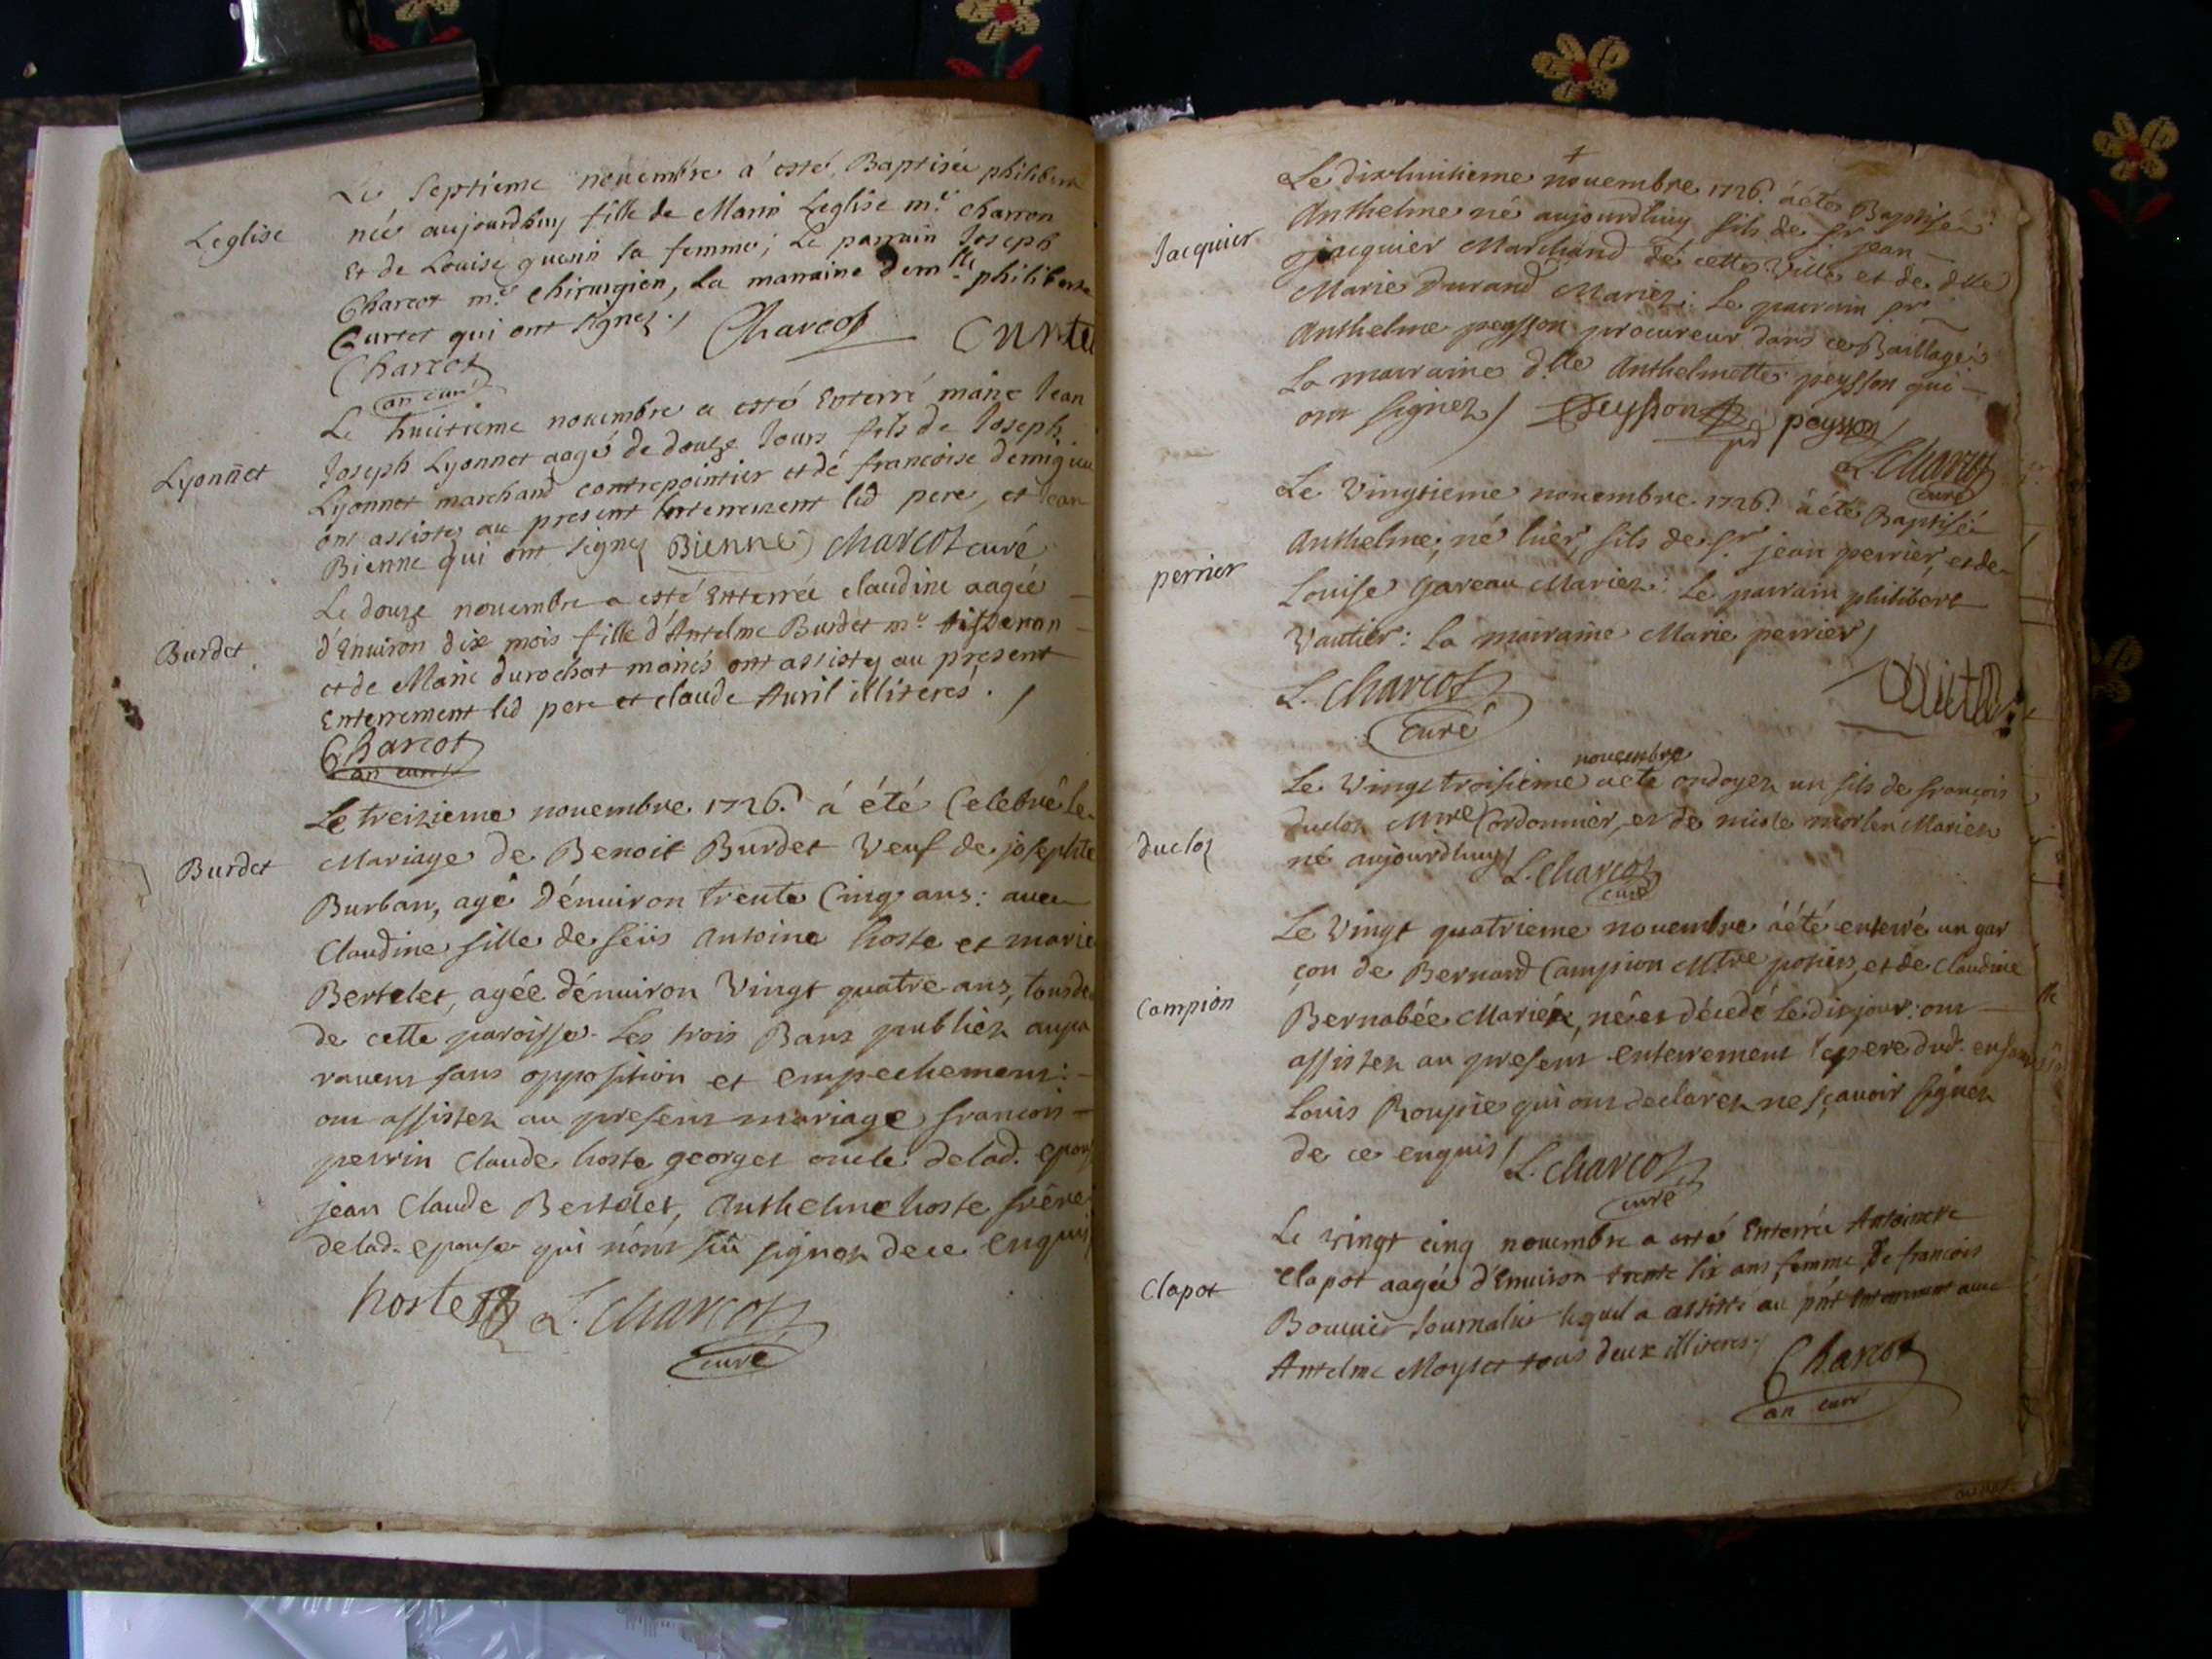 Le Septieme novembre a esté Baptisée philiberte
Leglise
née aujourdhuy fille de Marin Leglise m.e charron
Et de Louise guenin sa femme; Le parrain Joseph
Charcot m.e chirurgien, La marraine dem.lle philiberte
Curtet qui ont signez./ Charcot Curtet
Charcot
an curé
Le huitieme novembre a esté Enterré marie Jean
Lyonnet
Joseph Lyonnet aagé de douze Jours fils de Joseph
Lyonnet marchand contrepointier et de francoise
ont assistez au present Enterrement led pere, et Jean
Bienne qui ont signez Bienne charcot curé
Le douze novembre a esté Enterrée claudine aagée
Burdet
d'Enuiron dix mois fille d'Antelme Burdet m.e tisseran
et de Marie durochat mariés ont assistez au present
Enterrement led pere et claude Auril illiterés. /
Charcot
an curé
Le treizieme nouembre 1726. á été Celebré le
Burdet
Mariage de Benoit Burdet Veuf de josephte
Burban, agé d'énuiron trente Cinq ans: auec
Claudine fille de feüs Antoine hoste et marie
Bertelet, agée d'énuiron Vingt quatre ans, tous deux
de cette paroisse. Les trois Bans publiez aupa
rauent sans opposition et empechement:
ont assistez au present mariage francois
perrin Claude hoste georges oncle de lad. epouse
jean Claude Bertelet, Anthelme hoste frere
de lad. epouse qui n'ont sçu signer de ce enquis
hoste L. Charcot
curé
Le dixhuitieme nouembre 1726. á été Baptisé
Jacquier
Anthelme né aujourdhuy fils de sr jean
jacquier Marchand de cette Ville et de dlle
Marie Durand Mariez: Le parrain sr
Anthelme peysson procureur dans ce Baillage
La marraine d.lle Anthelmette peysson qui
ont signez/ Peysson peysson
L. Charcot
curé
Le Vingtieme nouembre 1726. á été Baptisé
perrier
Anthelme, né hier, fils de sr jean perrier, et de
Louise Gareau Mariez: Le parrain philibert
Vautier: La marraine Marie perrier/
L. Charcot
curé
nouembre
Le Vingt troisieme a été ondoyez un fils de françois
ducloz
ducloz Mtre Cordonnier, et de nicole merlen Mariez
né aujourdhuy/ L. Charcot
curé
Le Vingt quatrieme nouembre á été enterré un gar
çon de Bernard Campion Mtre potiers, et de Claudine
Campion
Bernabée Mariéz, né et décedé Ledit jour: ont
assistez au present enterrement le pere dud. enfant
Louis Roupie qui ont declarez ne sçauoir signer
de ce enquis/ L. Charcot
curé
Le vingt cinq nouembre a esté Enterrée Antoinette
Clapot
Clapot aagée d'Enuiron trente six ans femme de francois
Bouuier Journalier lequel a assisté au pñt Enterrement auec
Antelme Moylet tous deux illiteres./
Charcot
an curé